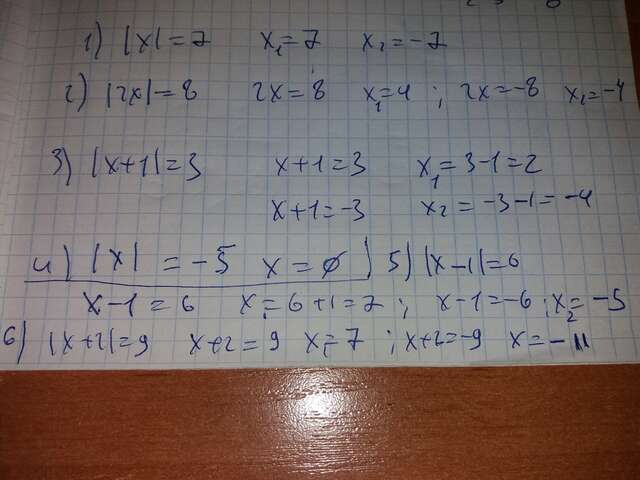 1) |x|=7 x₁=7 x₂=-7
2) |2x|=8 2x=8 x₁=4; 2x=-8 x₂=-4
3) |x+1|=3 x+1=3 x₁=3-1=2
x+1=-3 x₂=-3-1=-4
4) |x|=-5 x=∅ 5) |x-1|=6
x-1=6 x₁=6+1=7; x-1=-6; x₂=-5
6) |x+2|=9 x+2=9 x₁=7; x+2=-9 x=-11